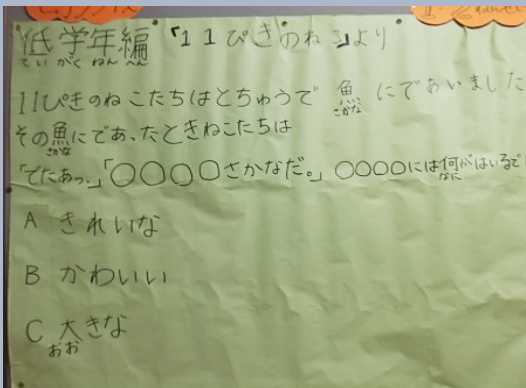 低学年編 「11ぴきのねこ」より
ていがくねんへん
11ぴきのねこたちはとちゅうで 魚 にであいました
さかな
その魚にであったときねこたちは
さかな
「でたあっ。」「〇〇〇〇さかなだ。」 〇〇〇〇には何がはいるで
なに
A きれいな
B かわいい
C 大きな
おお